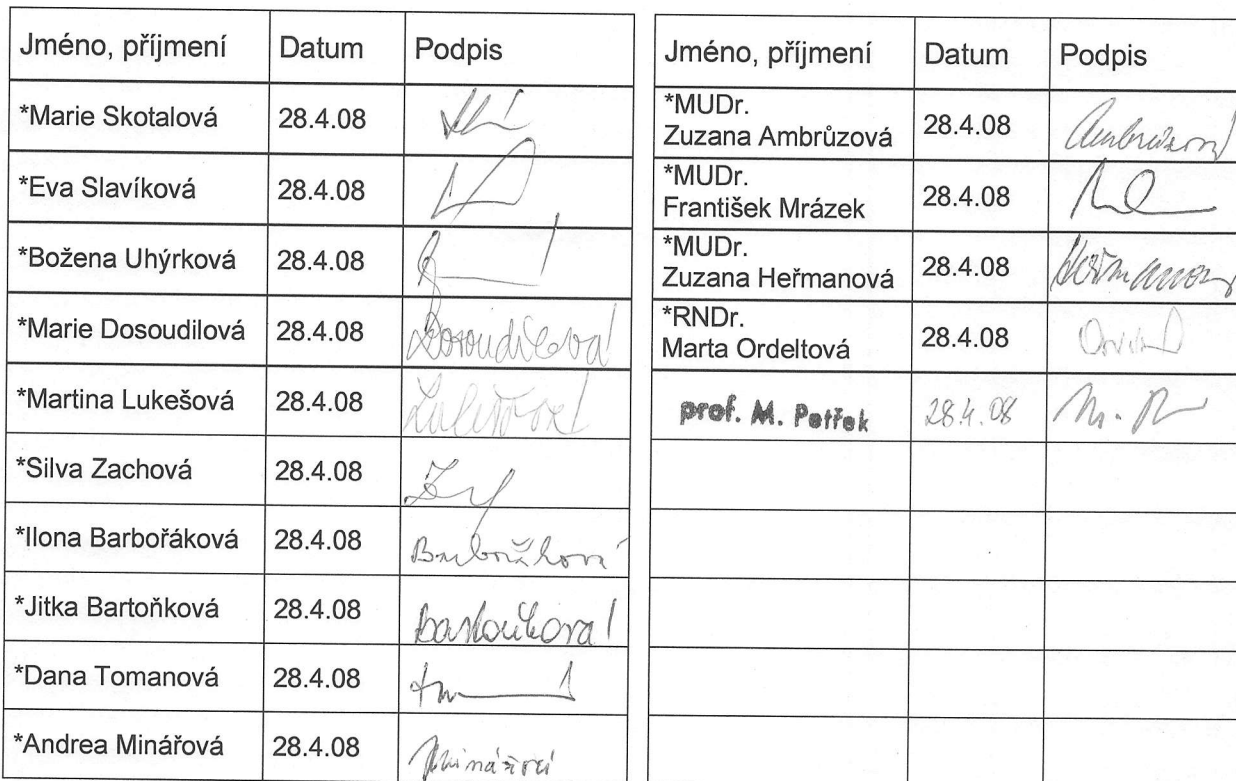 Jméno, příjmení Datum Podpis
*Marie Skotalová 28.4.08
*Eva Slavíková 28.4.08
*Božena Uhýrková 28.4.08
*Marie Dosoudilová 28.4.08 Dosoudilová
*Martina Lukešová 28.4.08 Lukešová
*Silva Zachová 28.4.08
*Ilona Barbořáková 28.4.08
*Jitka Bartoňková 28.4.08 Bartoňková
*Dana Tomanová 28.4.08
*Andrea Minářová 28.4.08 Minářová
Jméno, příjmení Datum Podpis
*MUDr.
Zuzana Ambrůzová 28.4.08 Ambrůzová
*MUDr.
František Mrázek 28.4.08
*MUDr.
Zuzana Heřmanová 28.4.08 Heřmanová
*RNDr.
Marta Ordeltová 28.4.08
prof. M. Petřek 28.4.08